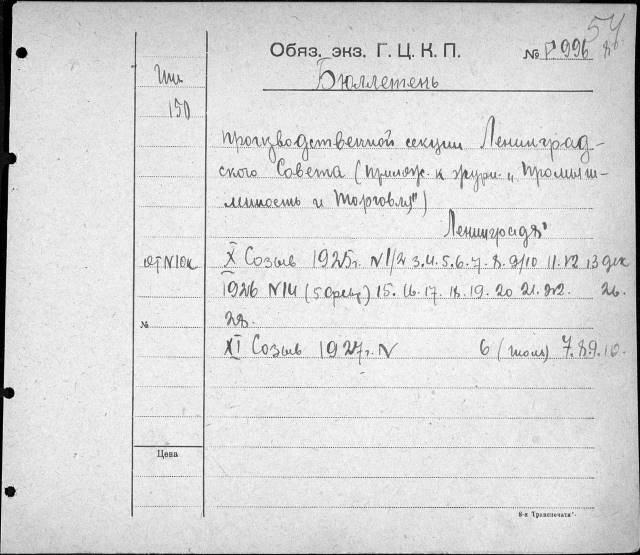 54
Обяз. экз. Г. Ц. К. П. № 996
Бюллетень
Шш
150
производственной секции Ленинград-
ского Совета (прилож. к журн. „Промыш-
ленность и Торговля")
Ленинград
X Созыв 1925г. N1/2 3.4.5.6.7.8.9/10 11.12 13 дек
1926 N14 (5 февр) 15. 16. 17. 18. 19. 20 21. 22. 26.
28.
№
XI Созыв 1927г. N 6 (июль) 7.8.9.10.
Цена
8-я Транспечати".